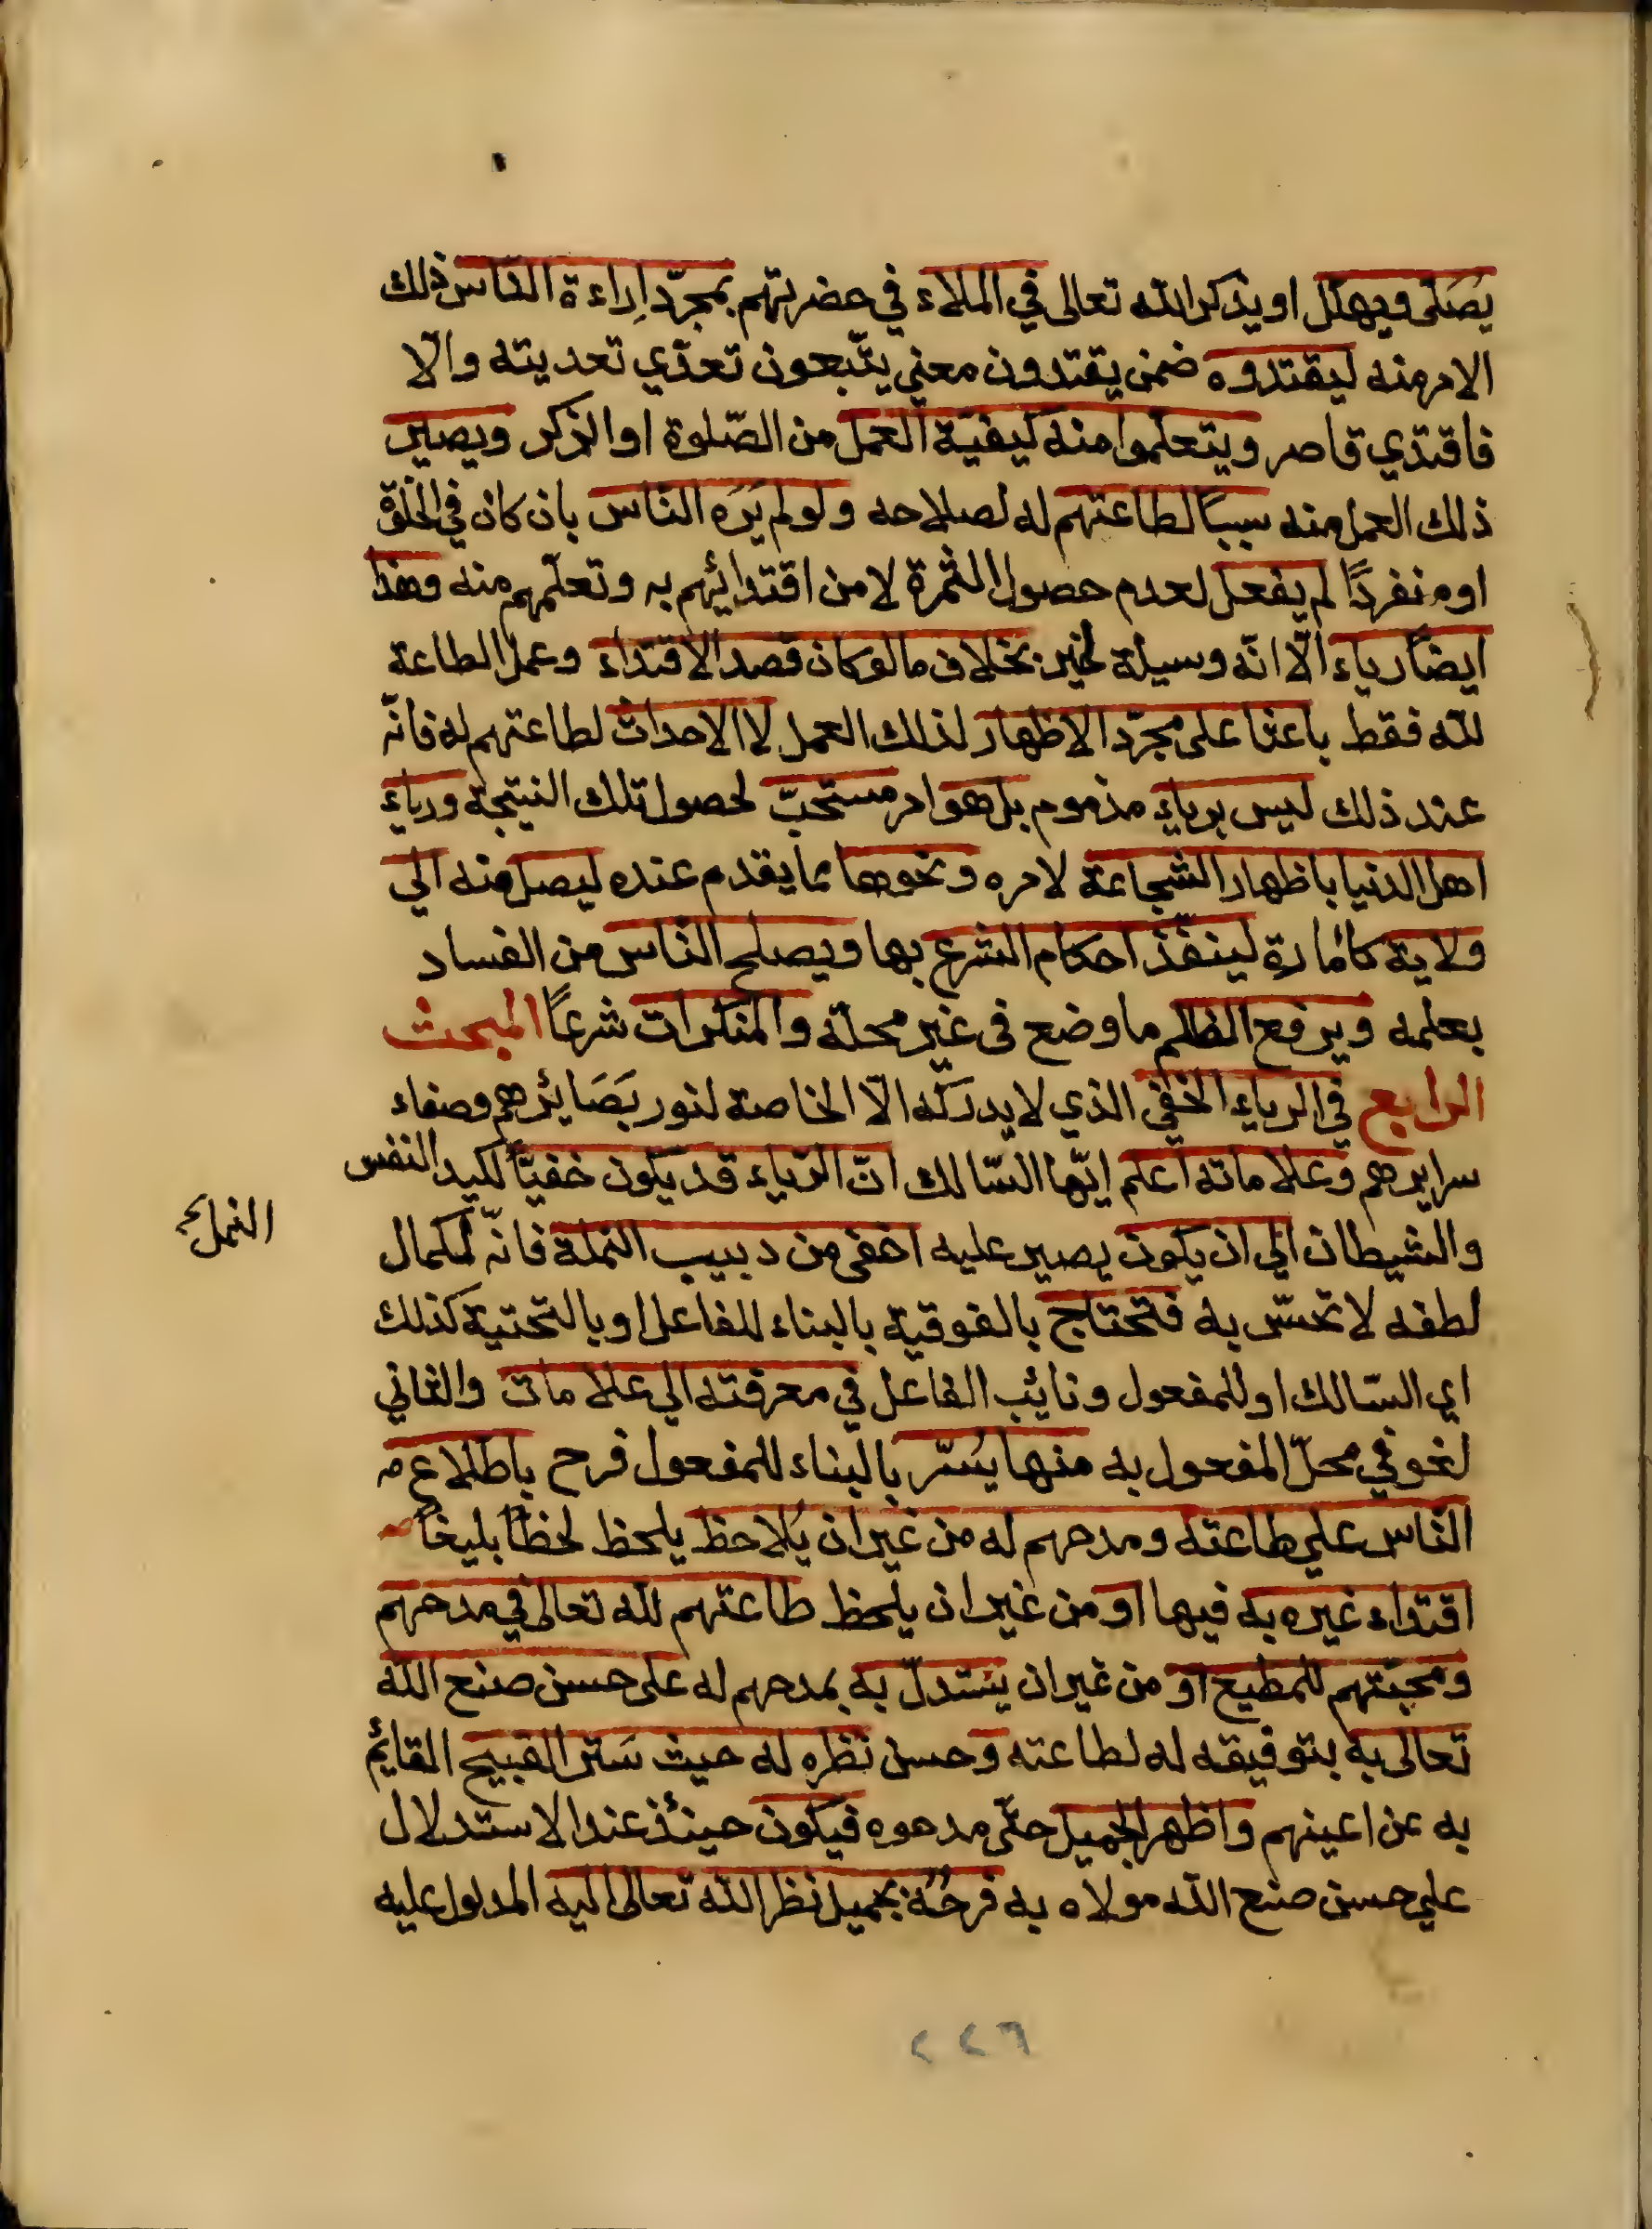 يصلى ويهلل او يذكر الله تعالى في الملاء في حضرتهم بمجرّد اِراءة الناس ذلك
الامر منه ليقتدوه ضمن يقتدون معني يتّبعون تعدّي تعديته والّا
فاقتدي قاصر ويتعلموا منه كيفيّة العمل من الصّلوة او الذكر ويصير
ذلك العمل منه سببًا لطاعتهم له لصلاحه ولو لم يَرَه النّاس بان كان في الخلوة
او منفردًا لم يفعل لعدم حصول الثمرة لا من اقتدائهم به وتعلّمهم منه وهذا
ايضًا رياء الّا انّه وسيلة لخير بخلاف ما لو كان قصد الاقتداء وعمل الطاعة
لله فقط باعثا على مجرّد الاظهار لذلك العمل لا الاحداث لطاعتهم له فانّه
عند ذلك ليس برياء مذموم بل هو امر مستحبّ لحصول تلك النتيجة ورياء
اهل الدنيا باظهار الشجاعة لامره ونحوها مما يقدم عنده ليصل منه الي
ولاية كامارة لينفّذ احكام الشرع بها ويصلح الناس من الفساد
بعلمه ويرفع الظلم ما وضع فى غير محلّه والمنكرات شرعًا المبحث
الرابع في الرياء الخفي الذي لا يدركه الّا الخاصة لنور بَصَائرهم وصفاء
سرايرهم وعلاماته اعلم ايّها السّالك انّ الرّياء قد يكون خفيّا لكيد النفس
والشيطان الي ان يكون يصير عليه اخفى من دبيب النملة فانّه لكمال
النمل
لطفه لا تحسّ به فتحتاج بالفوقية بالبناء للفاعل او بالتحتية كذلك
اي السّالك او للمفعول ونائب الفاعل في معرفته الي علامات والثاني
لغو في محلّ المفعول به منها يُسَرّ بالبناء للمفعول فرح باطلاع
النّاس علي طاعته ومدحهم له من غير ان يُلاحظ يلحظ لحظًا بليغًا
اقتداء غيره به فيها او من غير ان يلحظ طاعتهم لله تعالى في مدحهم
ومحبّتهم للمطيع او من غير ان يستدلّ به بمدحهم له على حسن صنع الله
تعالى به بتوفيقه له لطاعته وحسن نظره له حيث سَتَر القبيح القايم
به عن اعينهم واظهر الجميل حتّى مدحوه فيكون حينئذ عند الاستدلال
علي حسن صنع الله مولاه به فرحُهُ بجميل نظر الله تعالى اليه المدلول عليه
٢٢٦